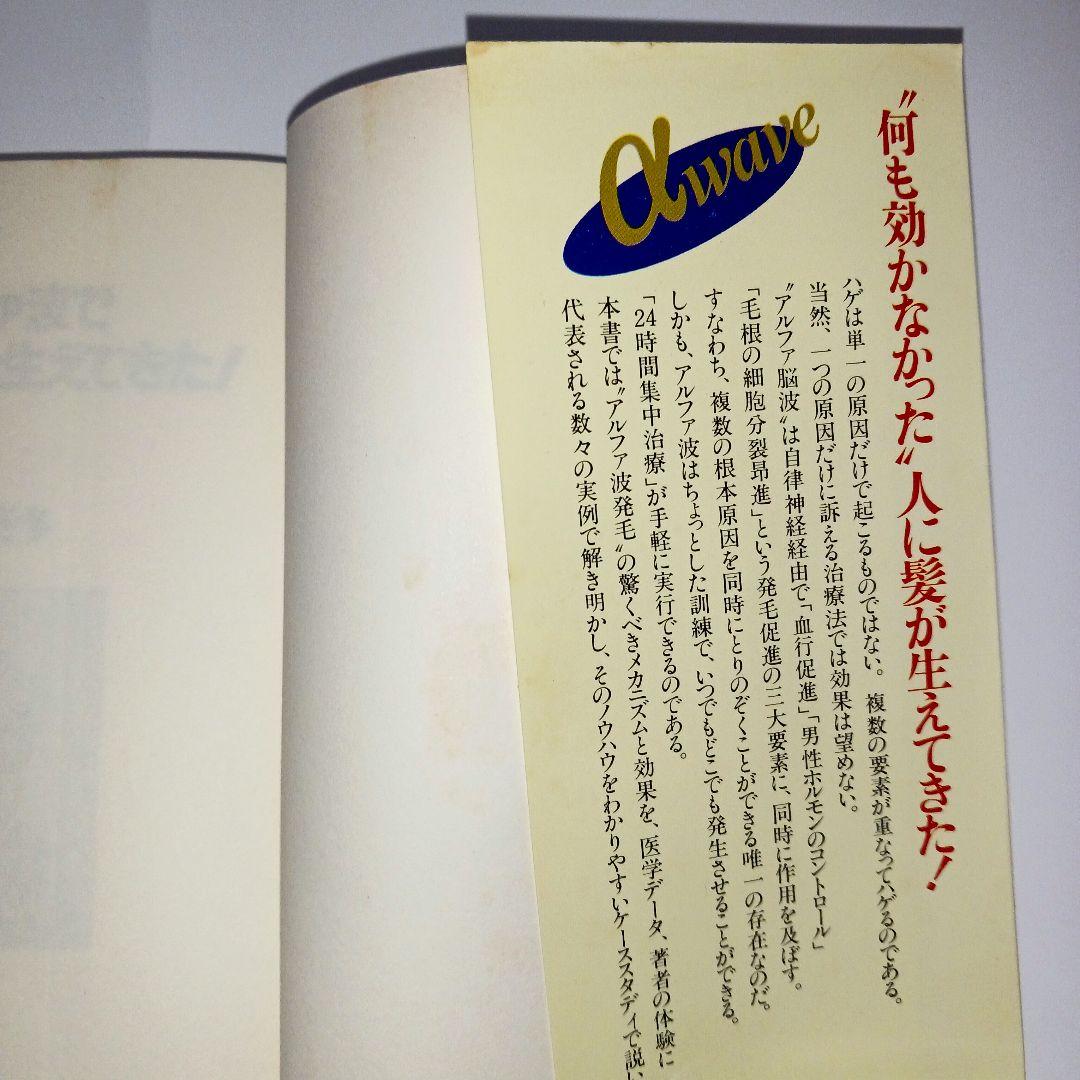 〝何も効かなかった〟人に髪が生えてきた！
αwave
ハゲは単一の原因だけで起こるものではない。複数の要素が重なってハゲるのである。
当然、一つの原因だけに訴える治療法では効果は望めない。
〝アルファ脳波〟は自律神経経由で「血行促進」「男性ホルモンのコントロール」
「毛根の細胞分裂昂進」という発毛促進の三大要素に、同時に作用を及ぼす。
すなわち、複数の根本原因を同時にとりのぞくことができる唯一の存在なのだ。
しかも、アルファ波はちょっとした訓練で、いつでもどこでも発生させることができる。
「24時間集中治療」が手軽に実行できるのである。
本書では〝アルファ波発毛〟の驚くべきメカニズムと効果を、医学データ、著者の体験に
代表される数々の実例で解き明かし、そのノウハウをわかりやすいケーススタディで説い
波で
生えてきた！